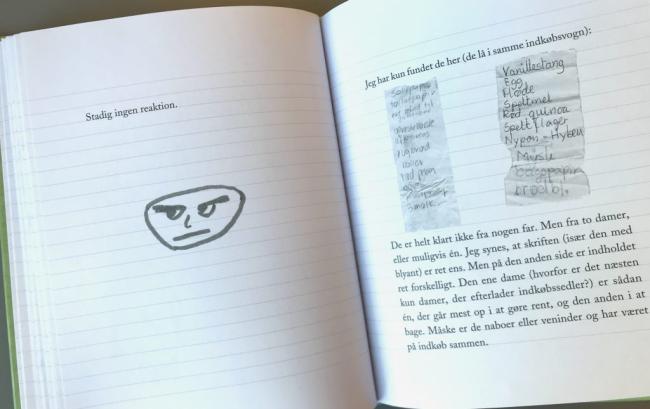 Stadig ingen reaktion.
Jeg har kun fundet de her (de lå i samme indkøbsvogn):
toiletpapir
rugbrød
Vanillestang
Egg
Fløde
Speltmel
Rød quinoa
Spelt flager
Nypon - Hyben
Müsli
bagepapir
De er helt klart ikke fra nogen far. Men fra to damer,
eller muligvis én. Jeg synes, at skriften (især den med
blyant) er ret ens. Men på den anden side er indholdet
ret forskelligt. Den ene dame (hvorfor er det næsten
kun damer, der efterlader indkøbssedler?) er sådan
én, der går mest op i at gøre rent, og den anden i at
bage. Måske er de naboer eller veninder og har været
på indkøb sammen.